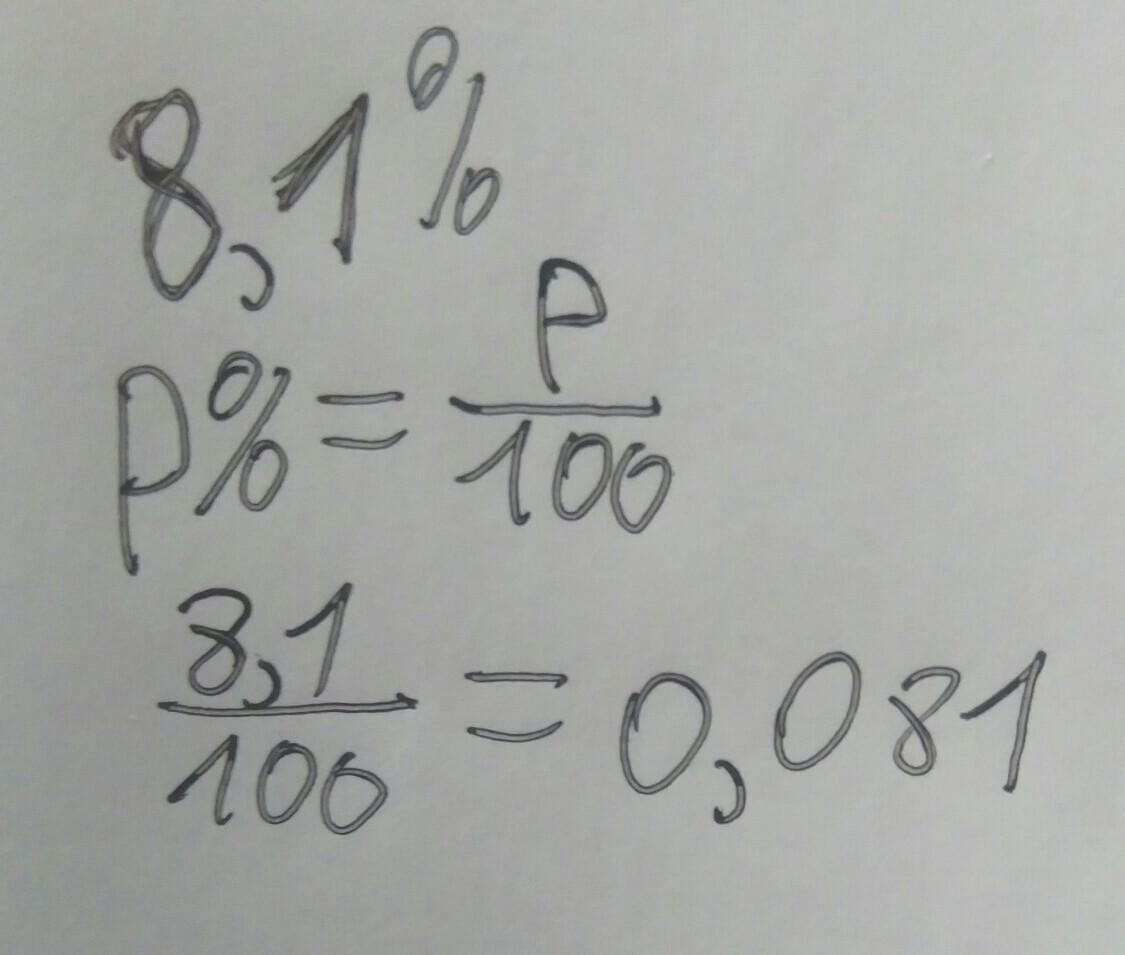 8,1%
p% = p/100
8,1/100 = 0,081